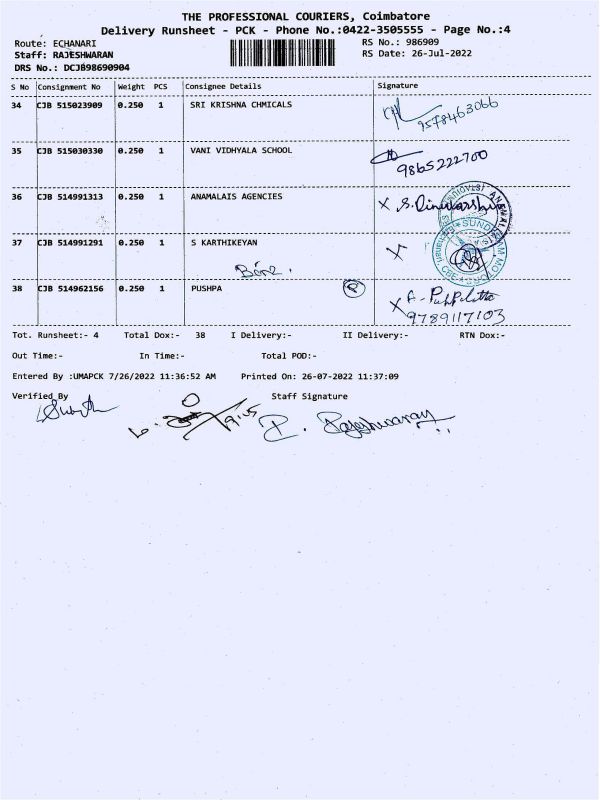 THE PROFESSIONAL COURIERS, Coimbatore
Delivery Runsheet - PCK - Phone No.:0422-3505555 - Page No.:4
Route: ECHANARI RS No.: 986909
Staff: RAJESHWARAN RS Date: 26-Jul-2022
DRS No.: DCJB98690904
S No Consignment No Weight PCS Consignee Details Signature
34 CJB 515023909 0.250 1 SRI KRISHNA CHMICALS
9578463066
35 CJB 515030330 0.250 1 VANI VIDHYALA SCHOOL
9865222700
36 CJB 514991313 0.250 1 ANAMALAIS AGENCIES X
37 CJB 514991291 0.250 1 S KARTHIKEYAN X
38 CJB 514962156 0.250 1 PUSHPA P X
9789117103
Tot. Runsheet:- 4 Total Dox:- 38 I Delivery:- II Delivery:- RTN Dox:-
Out Time:- In Time:- Total POD:-
Entered By :UMAPCK 7/26/2022 11:36:52 AM Printed On: 26-07-2022 11:37:09
Verified By Staff Signature
P. Rajeshwaran